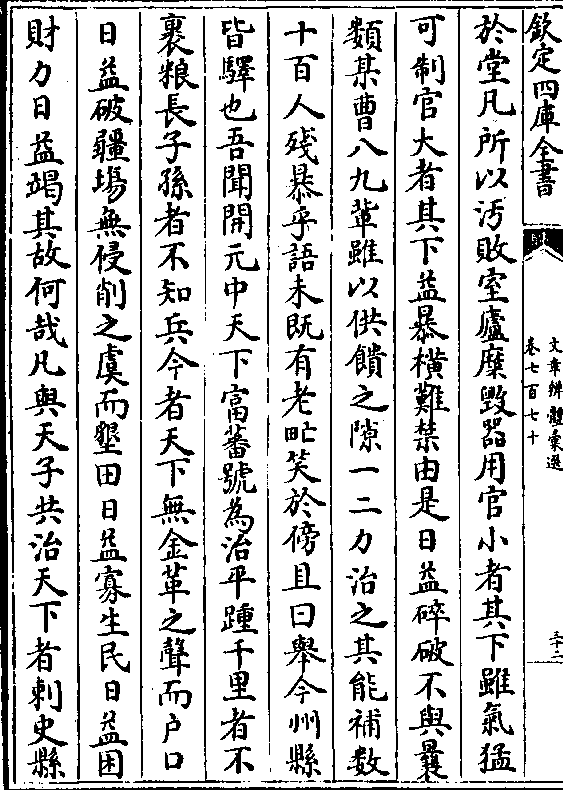 欽定四庫全書
文章辨體彙選
卷七百七十
三十二
於堂凡所以汚敗室廬糜毀器用官小者其下雖氣猛
可制官大者其下益暴橫難禁由是日益碎破不與曩
類某曹八九軰雖以供饋之隙一二力治之其能補數
十百人殘暴乎語未既有老甿笑於傍且曰舉今州縣
皆驛也吾聞開元中天下富蕃號為治平踵千里者不
裹粮長子孫者不知兵今者天下無金革之聲而户口
日益破疆埸無侵削之虞而墾田日益寡生民日益困
財力日益竭其故何哉凡與天子共治天下者刺史縣